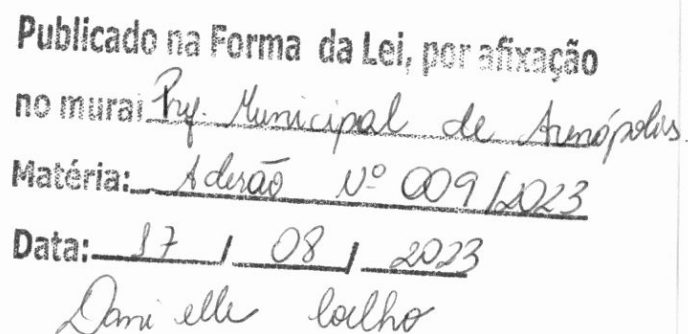 Publicado na Forma da Lei, por afixação
no mural Pref. Municipal de Arenópolis.
Matéria: Adesão Nº 009/2023
Data: 17 / 08 / 2023
Danielle Coelho